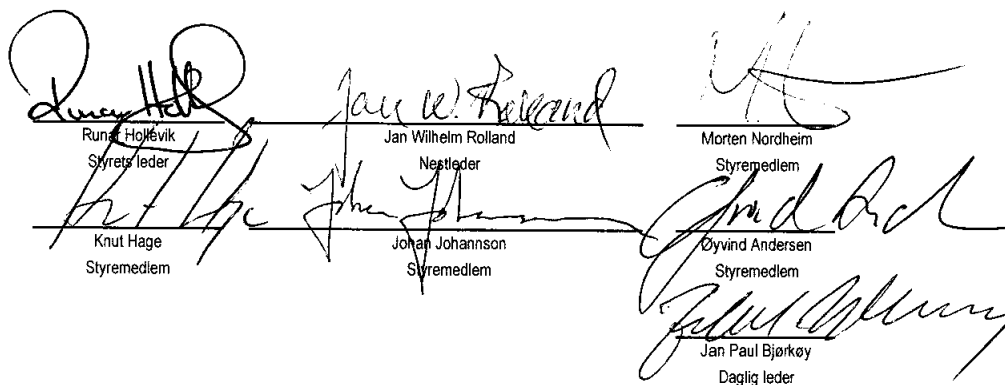 Runar Hollevik
Styrets leder
Jan W. Rolland
Jan Wilhelm Rolland
Nestleder
Morten Nordheim
Styremedlem
Knut Hage
Styremedlem
Johan Johannson
Johan Johannson
Styremedlem
Øyvind Andersen
Styremedlem
Jan Paul Bjørkøy
Daglig leder